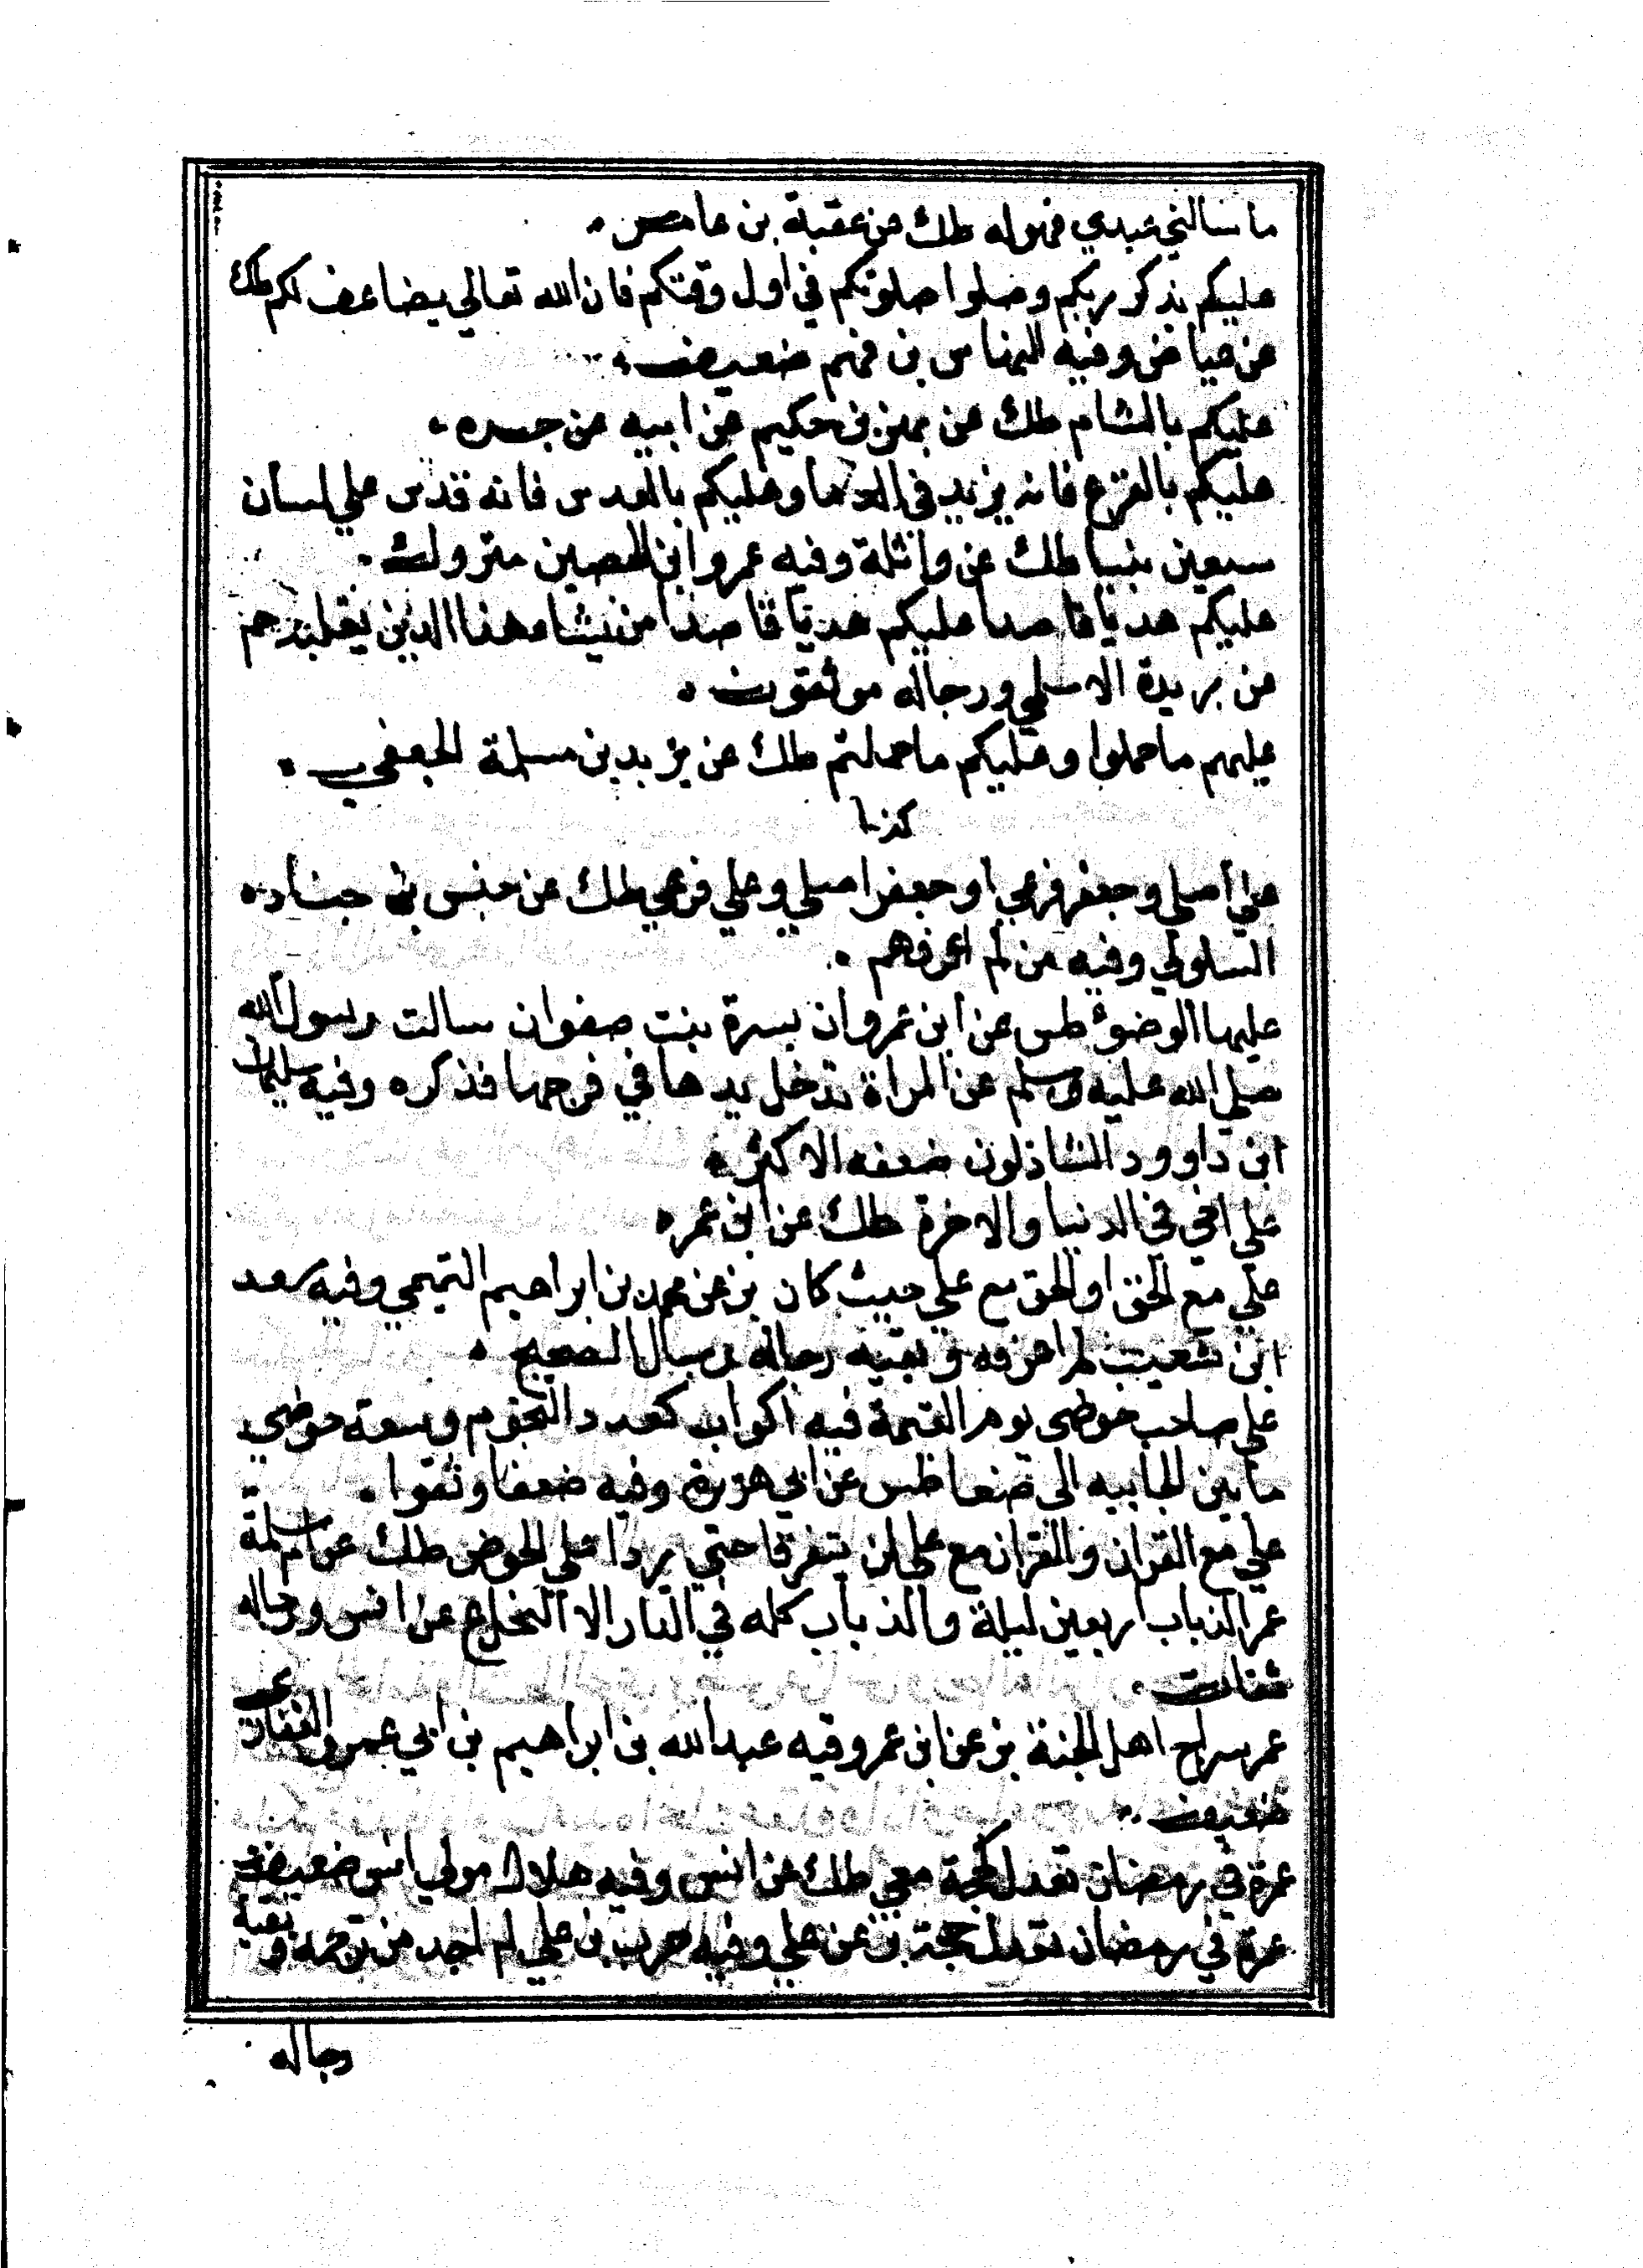 ما سالني عبدي فهو له طك عن عقبة بن عامر
عليكم بذكر ربكم وصلوا صلوتكم في اول وقتكم فان الله تعالي يضاعف لكم طك
عن عياض وفيه النهاس بن فهم ضعيف
عليكم بالشام طك عن بهز بن حكيم عن ابيه عن جده
عليكم بالقرع فانه يزيد في الدماغ وعليكم بالعدس فانه قدس علي لسان
سبعين نبيا طك عن واثلة وفيه عمرو ابن الحصين متروك
عليكم هديا قاصدا عليكم هديا قاصدا من يشاد هذا الدين يغلبه حم
عن بريدة الاسلمي ورجاله موثقون
عليهم ما حملوا وعليكم ما حملتم طك عن يزيد بن مسلمة الجعفي
كذا
علي اصلي وجعفر فرعي او جعفر اصلي وعلي فرعي طك عن حبس بن جناده
السلولي وفيه من لم اعرفهم
عليها الوضوء طس عن ابن عمرو ان بسرة بنت صفوان سالت رسول الله
صلي الله عليه وسلم عن المراة تدخل يدها في فرجها فذكره وفيه سليمان
ابن داوود الشاذلون ضعفه الاكثر
علي اخي في الدنيا والاخرة طك عن ابن عمر
علي مع الحق او الحق مع علي حيث كان بز عن محمد بن ابراهيم التيمي وفيه سعد
ابن شعيب لم اعرفه و بقية رجاله رجال الصحيح
علي صاحب حوضي يوم القيمة فيه اكواب كعدد النجوم وسعة حوضي
ما بين الجابيه الي صنعا طس عن ابي هريرة وفيه ضعفا وثقوا
علي مع القران والقران مع علي لن يتفرقا حتي يردا علي الحوض طك عن ام سلمة
عمر الذباب اربعين ليلة والذباب كله في النار الا النحل ع عن انس ورجاله
ثقات
عمر سراج اهل الجنة بز عن ابن عمر وفيه عبد الله بن ابراهيم بن ابي عمرو الغفاري
ضعيف
عمرة في رمضان تعدل حجة معي طك عن انس وفيه هلال مولي انس ضعيف
عمرة في رمضان تعدل حجة بز عن علي وفيه حرب بن علي لم اجد من ترجمه و بقية
رجاله